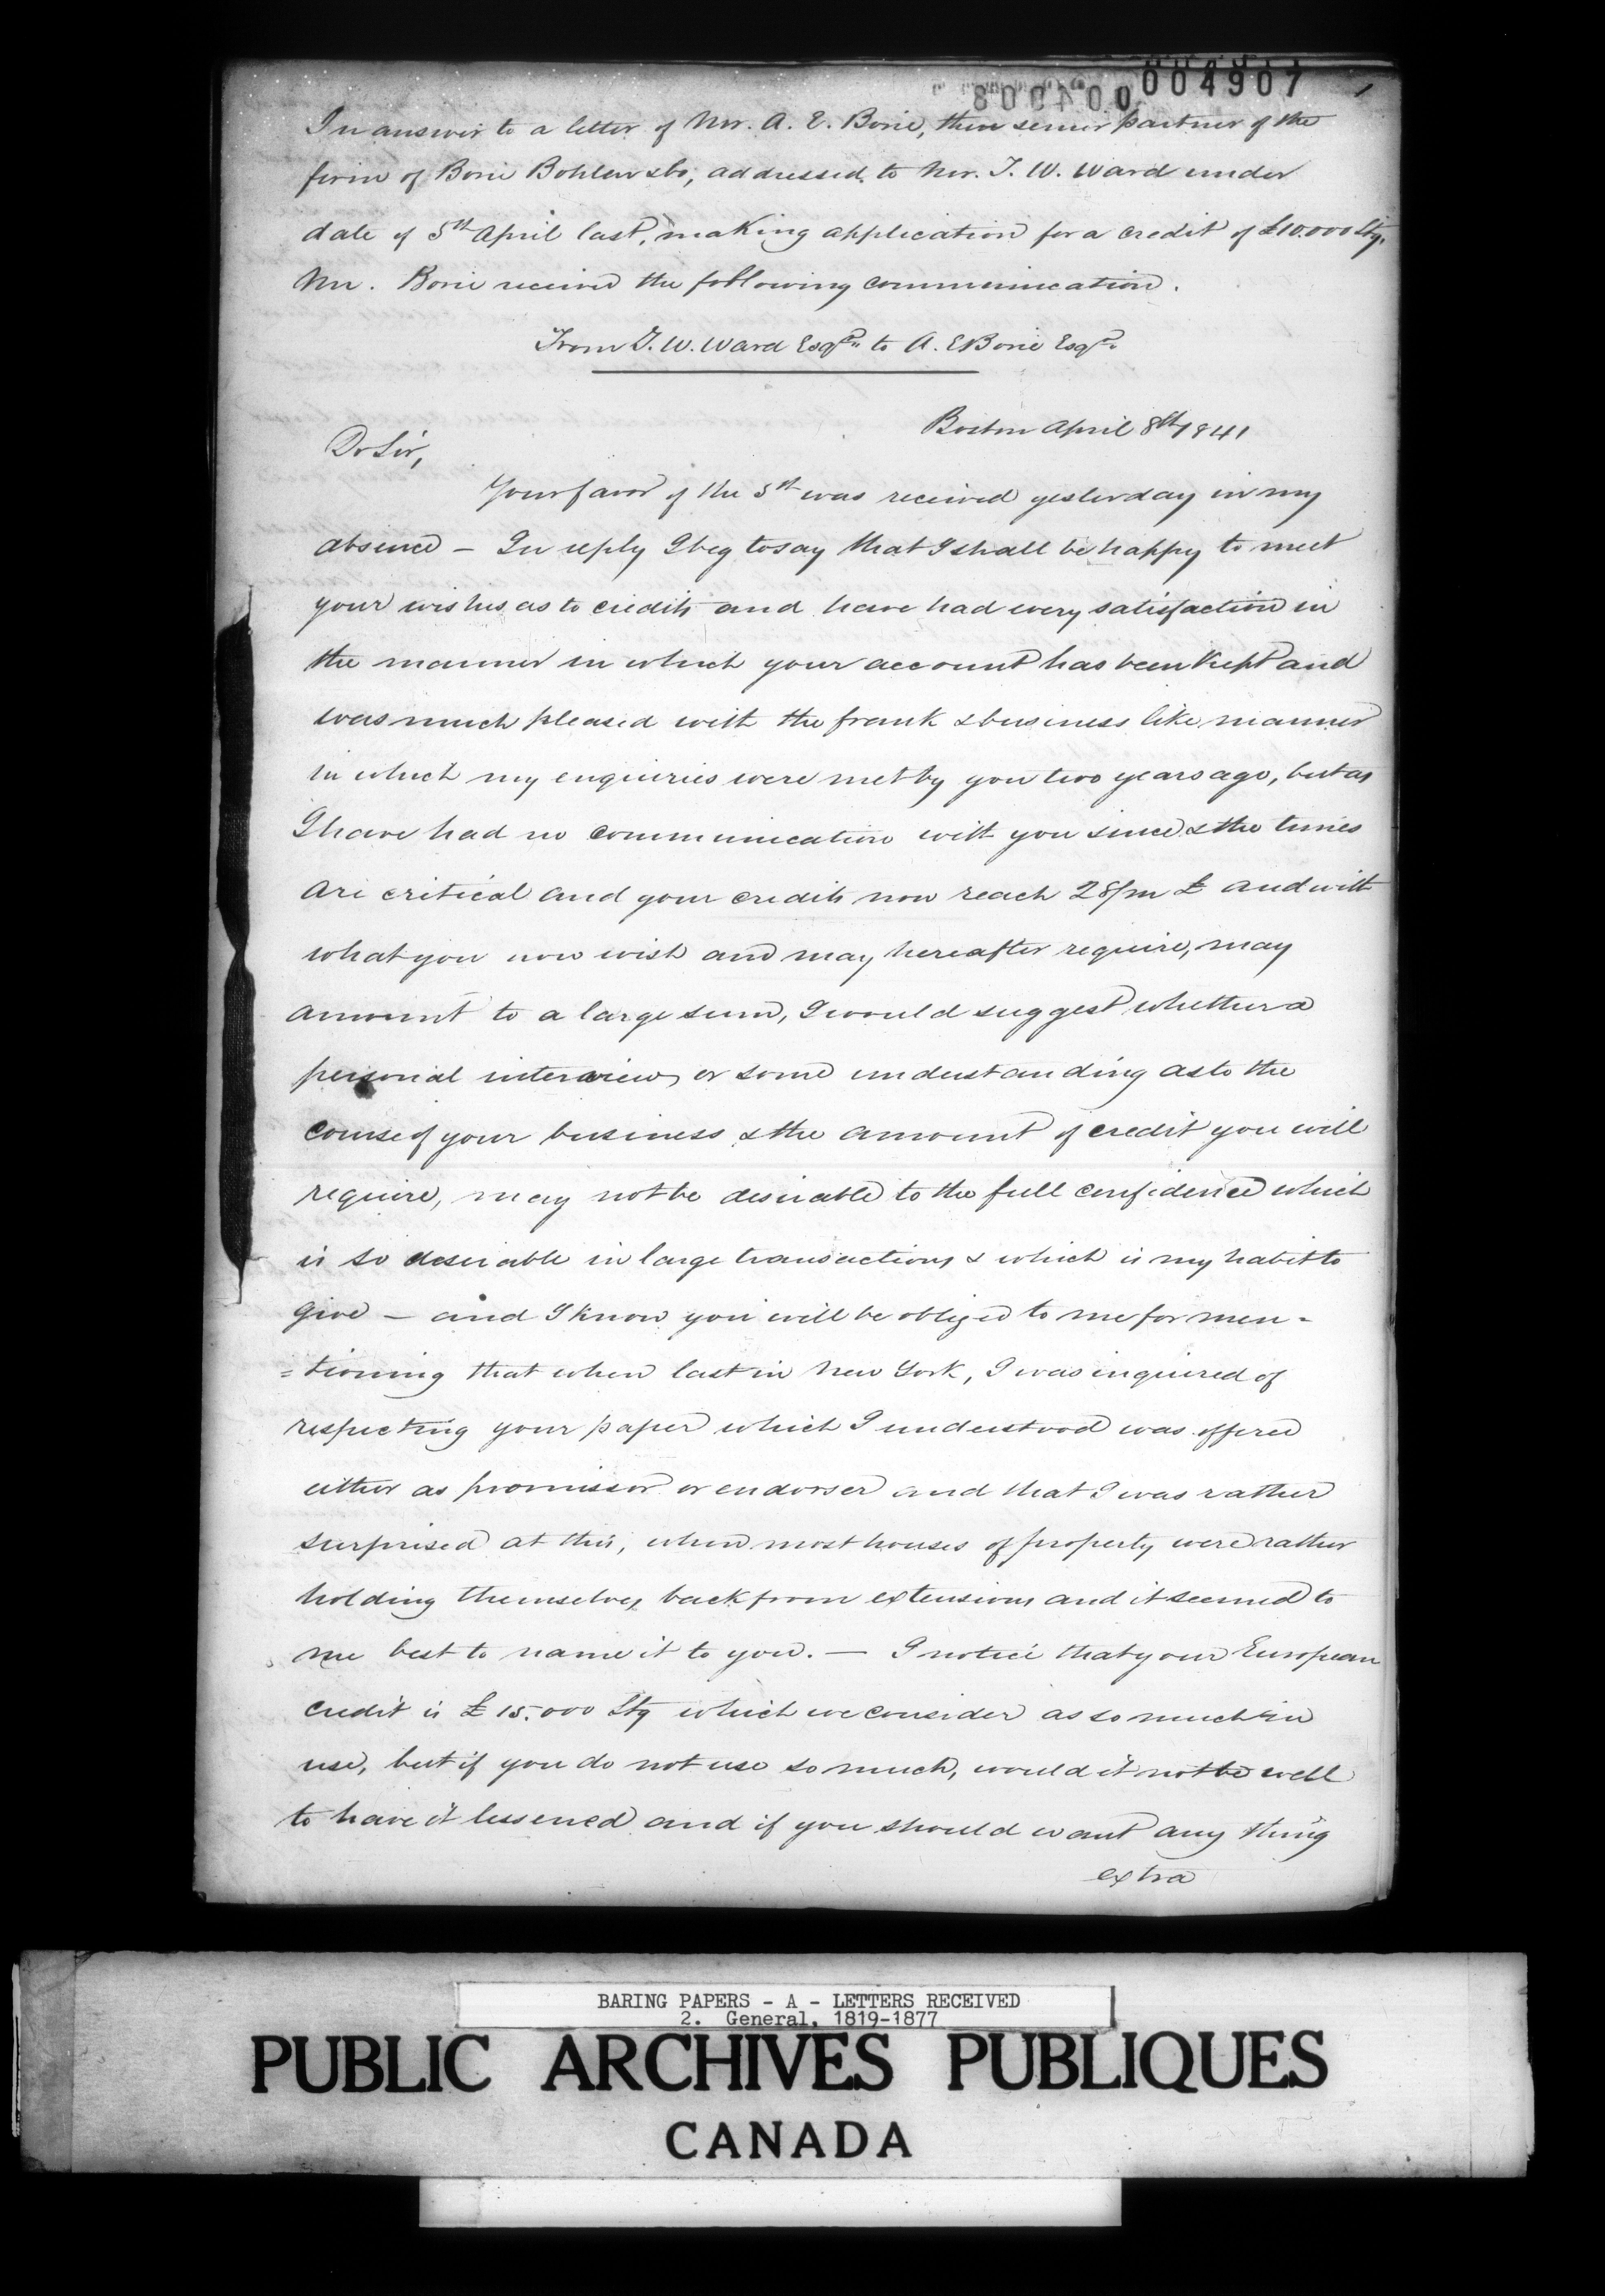 004907
004908
In answer to a letter of Mr. A. E. Borie, then senior partner of the
firm of Borie Bohlen & Co, addressed to Mr. T. W. Ward under
date of 5th April last, making application for a credit of £10.000 Stg.
Mr. Borie received the following communication.
From T. W. Ward Esqre. to A. E Borie Esqr.
Boston April 8th 1841
Dr Sir,
Your favor of the 5th was received yesterday in my
absence — In reply I beg to say that I shall be happy to meet
your wishes as to credits and have had every satisfaction in
the manner in which your account has been kept and
was much pleased with the frank & business like manner
in which my enquiries were met by you two years ago, but as
I have had no communication with you since & the times
are critical and your credits now reach 28/m £ and with
what you now wish and may hereafter require, may
amount to a large sum, I would suggest whether a
personal interview or some understanding as to the
course of your business & the amount of credit you will
require, may not be desirable to the full confidence which
is so desirable in large transactions & which is my habit to
give — and I know you will be obliged to me for men=
=tioning that when last in New York, I was inquired of
respecting your paper which I understood was offered
either as promissor or endorser and that I was rather
surprised at this, when most houses of property were rather
holding themselves back from extensions and it seemed to
me best to name it to you. — I notice that your European
credit is £ 15.000 Stg which we consider as so much in
use, but if you do not use so much, would it not be well
to have it lessened and if you should want any thing
extra
BARING PAPERS - A - LETTERS RECEIVED
2. General, 1819-1877
PUBLIC ARCHIVES PUBLIQUES
CANADA